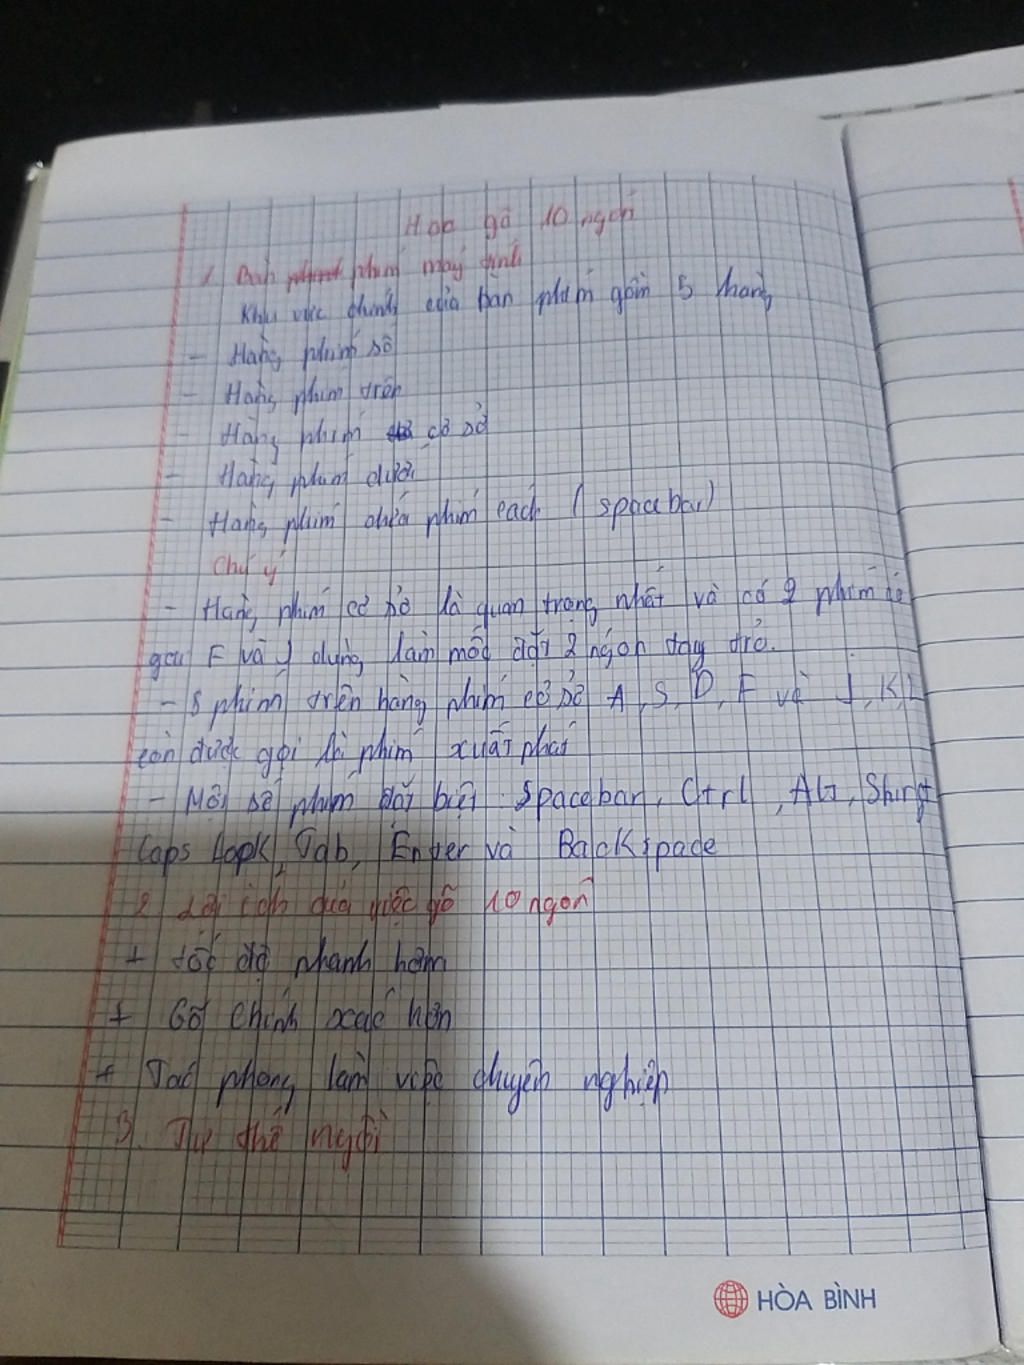 Học gõ 10 ngón
1 Bàn phím máy tính
Khu vực chính của bàn phím gồm 5 hàng
- Hàng phím số
- Hàng phím trên
- Hàng phím cơ sở
- Hàng phím dưới
- Hàng phím chứa phím cách (spacebar)
Chú ý
- Hàng phím cơ sở là quan trọng nhất và có 2 phím có
gai F và J dùng làm mốc đặt 2 ngón tay trỏ.
- 8 phím trên hàng phím cơ sở A, S, D, F và J, K, L
còn được gọi là phím xuất phát
- Một số phím đặt biệt: Spacebar, Ctrl, Alt, Shirft
Caps Lopk, Tab, Enter và Backspace
2 Lợi ích của việc gõ 10 ngón
+ tốc độ nhanh hơn
+ Gõ chính xác hơn
+ Tác phong làm việc chuyên nghiệp
3. Tư thế ngồi
HÒA BÌNH